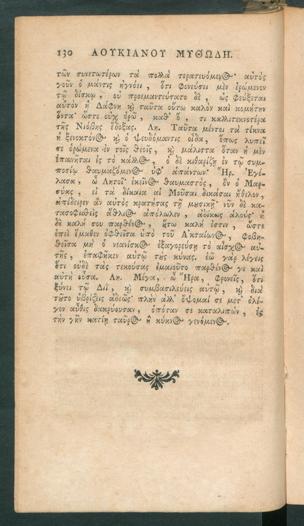 130 ΛΟΥΚΙΑΝΟΥ ΜΥΘΩΔΗ.
τῶν συνετωτέρων τὰ πολλὰ τερατευόμενος· αὐτὸς
γοῦν ὁ μάντις ἠγνόει, ὅτι φονεύσει μὲν ἐρώμενον
τῷ δίσκῳ, οὐ προεμαντεύσατο δὲ, ὡς φεύξεται
αὐτὸν ἡ Δάφνη καὶ ταῦτα οὕτω καλὸν καὶ κομήτην
ὄντα· ὥστε οὐχ ὁρῶ, καθ' ὅ, τι καλλιτεκνοτέρα
τῆς Νιόβης ἔδοξας. Λη. Ταῦτα μέντοι τὰ τέκνα
ἡ ξενοκτόνος καὶ ὁ ψευδόμαντις οἶδα, ὅπως λυπεῖ
σε ὁρώμενα ἐν τοῖς θεοῖς, καὶ μάλιστα ὅταν ἡ μὲν
ἐπαινῆται ἐς τὸ κάλλος, ὁ δὲ κιθαρίζῃ ἐν τῷ συμ-
ποσίῳ θαυμαζόμενος ὑφ' ἁπάντων. Ἥρ. Ἐγέ-
λασα, ὦ Λητοῖ· ἐκεῖνος θαυμαστὸς, ὃν ὁ Μαρ-
σύας, εἰ τὰ δίκαια αἱ Μοῦσαι δικάσαι ἤθελον,
ἀπέδειρεν ἂν αὐτὸς κρατήσας τῇ μουσικῇ· νῦν δὲ κα-
τασοφισθεὶς ἄθλιος ἀπόλωλεν, ἀδίκως ἁλούς· ἡ
δὲ καλή σου παρθένος, οὕτω καλή ἐστιν, ὥστε
ἐπεὶ ἔμαθεν ὀφθεῖσα ὑπὸ τοῦ Ἀκταίωνος, φοβη-
θεῖσα μὴ ὁ νεανίσκος ἐξαγορεύσῃ τὸ αἶσχος αὐ-
τῆς, ἐπαφῆκεν αὐτῷ τὰς κύνας. ἐῶ γὰρ λέγειν
ὅτι οὐδὲ τὰς τεκούσας ἐμαιοῦτο παρθένος γε καὶ
αὐτὴ οὖσα. Λη. Μέγα, ὦ Ἥρα, φρονεῖς, ὅτι
ξύνει τῷ Διῒ, καὶ συμβασιλεύεις αὐτῷ, καὶ διὰ
τοῦτο ὑβρίζεις ἀδεῶς· πλὴν ἀλλ' ὄψομαί σε μετ' ὀλί-
γον αὖθις δακρύουσαν, ὁπόταν σε καταλιπὼν, ἐς
τὴν γῆν κατίῃ ταῦρος ἢ κύκνος γενόμενος.